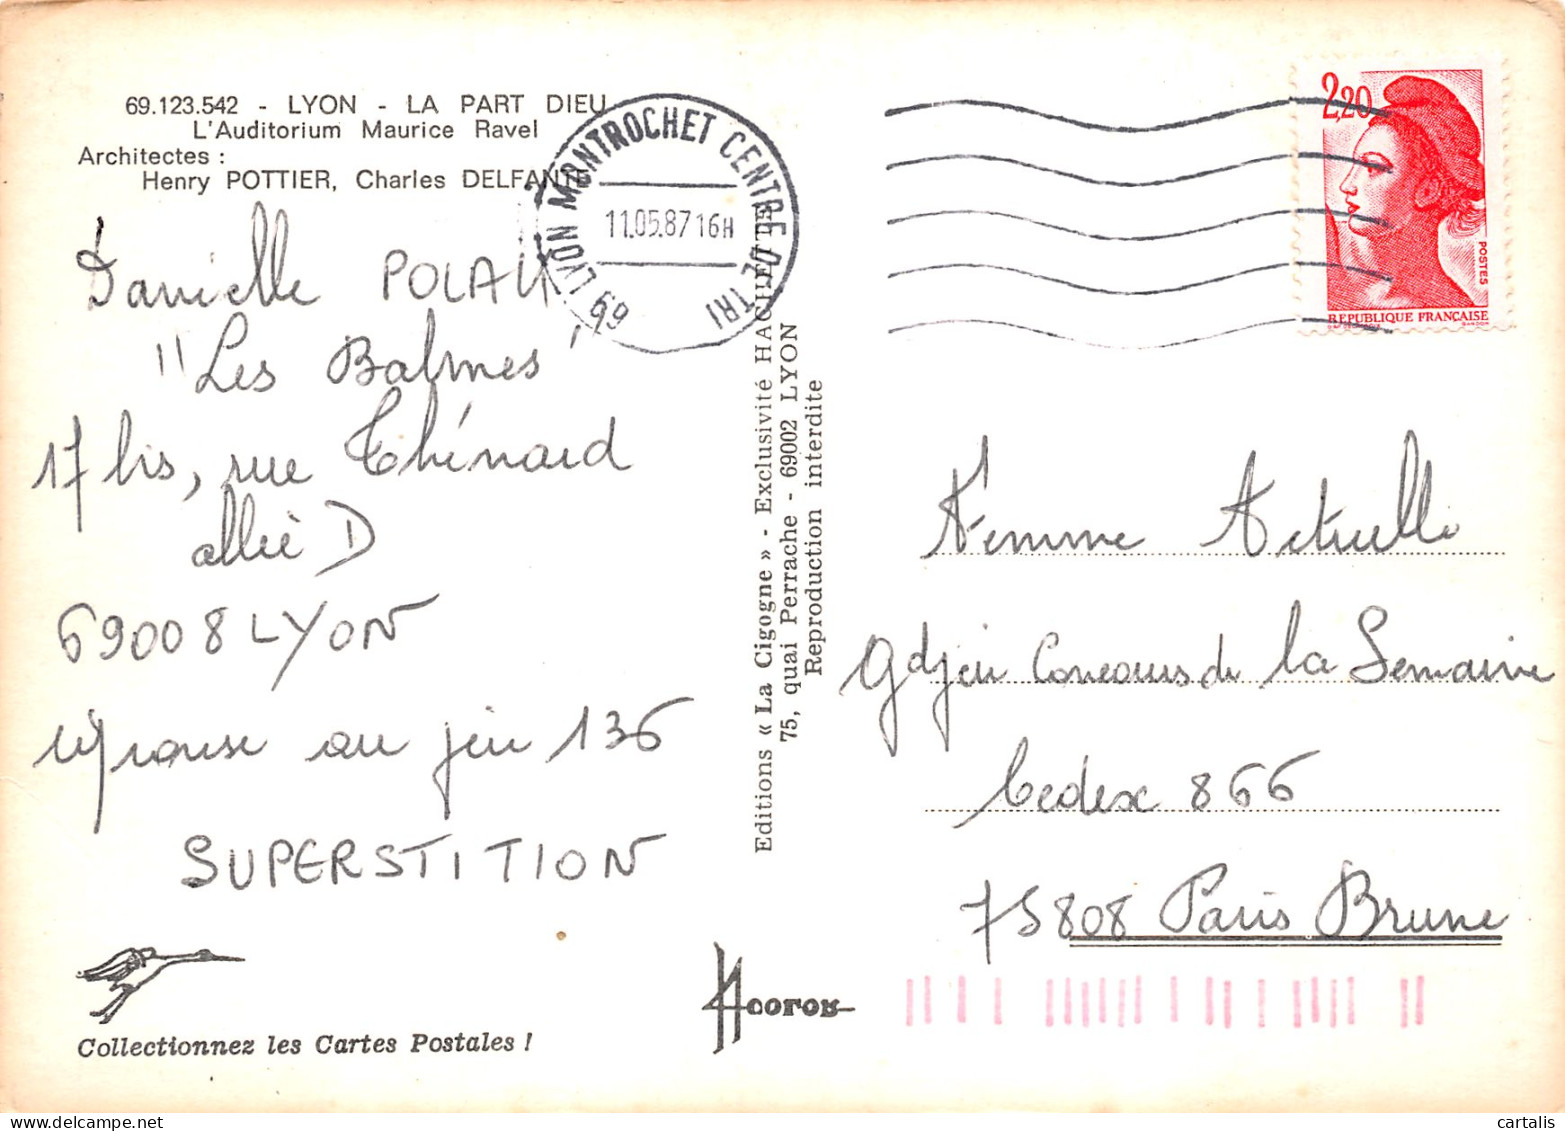 69.123.542 - LYON - LA PART DIEU
L'Auditorium Maurice Ravel
Architectes :
Henry POTTIER, Charles DELFANTE
Danielle POLAK
"Les Balmes"
17 bis, rue Thénard
allée D
69008 LYON
réponse au jeu 136
SUPERSTITION
Collectionnez les Cartes Postales !
69 LYON MONTROCHET CENTRE DE TRI
11.05.87 16H
Editions « La Cigogne » - Exclusivité HACHETTE
75, quai Perrache - 69002 LYON
Reproduction interdite
2,20
POSTES
REPUBLIQUE FRANÇAISE
GANDON
Femme Actuelle
gd jeu Concours de la Semaine
Cedex 866
75808 Paris Brune
cartalis